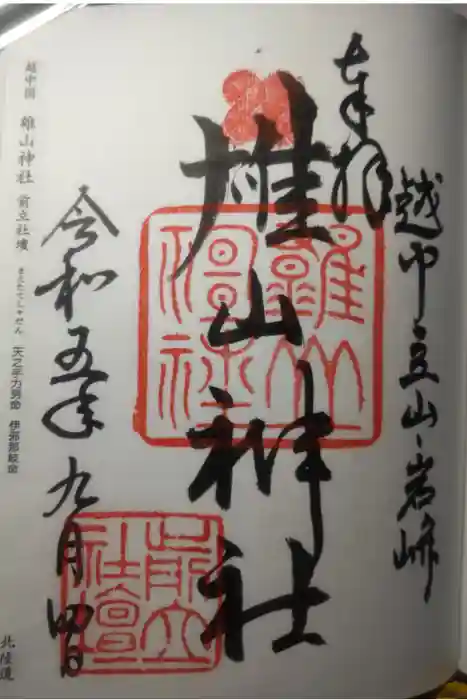 奉拝
越中立山岩峅
雄山神社
雄山神社
前立社壇
令和五年九月四日
越中国 雄山神社 前立社壇
まえたてしゃだん
天之手力男命 伊邪那岐命
北陸道